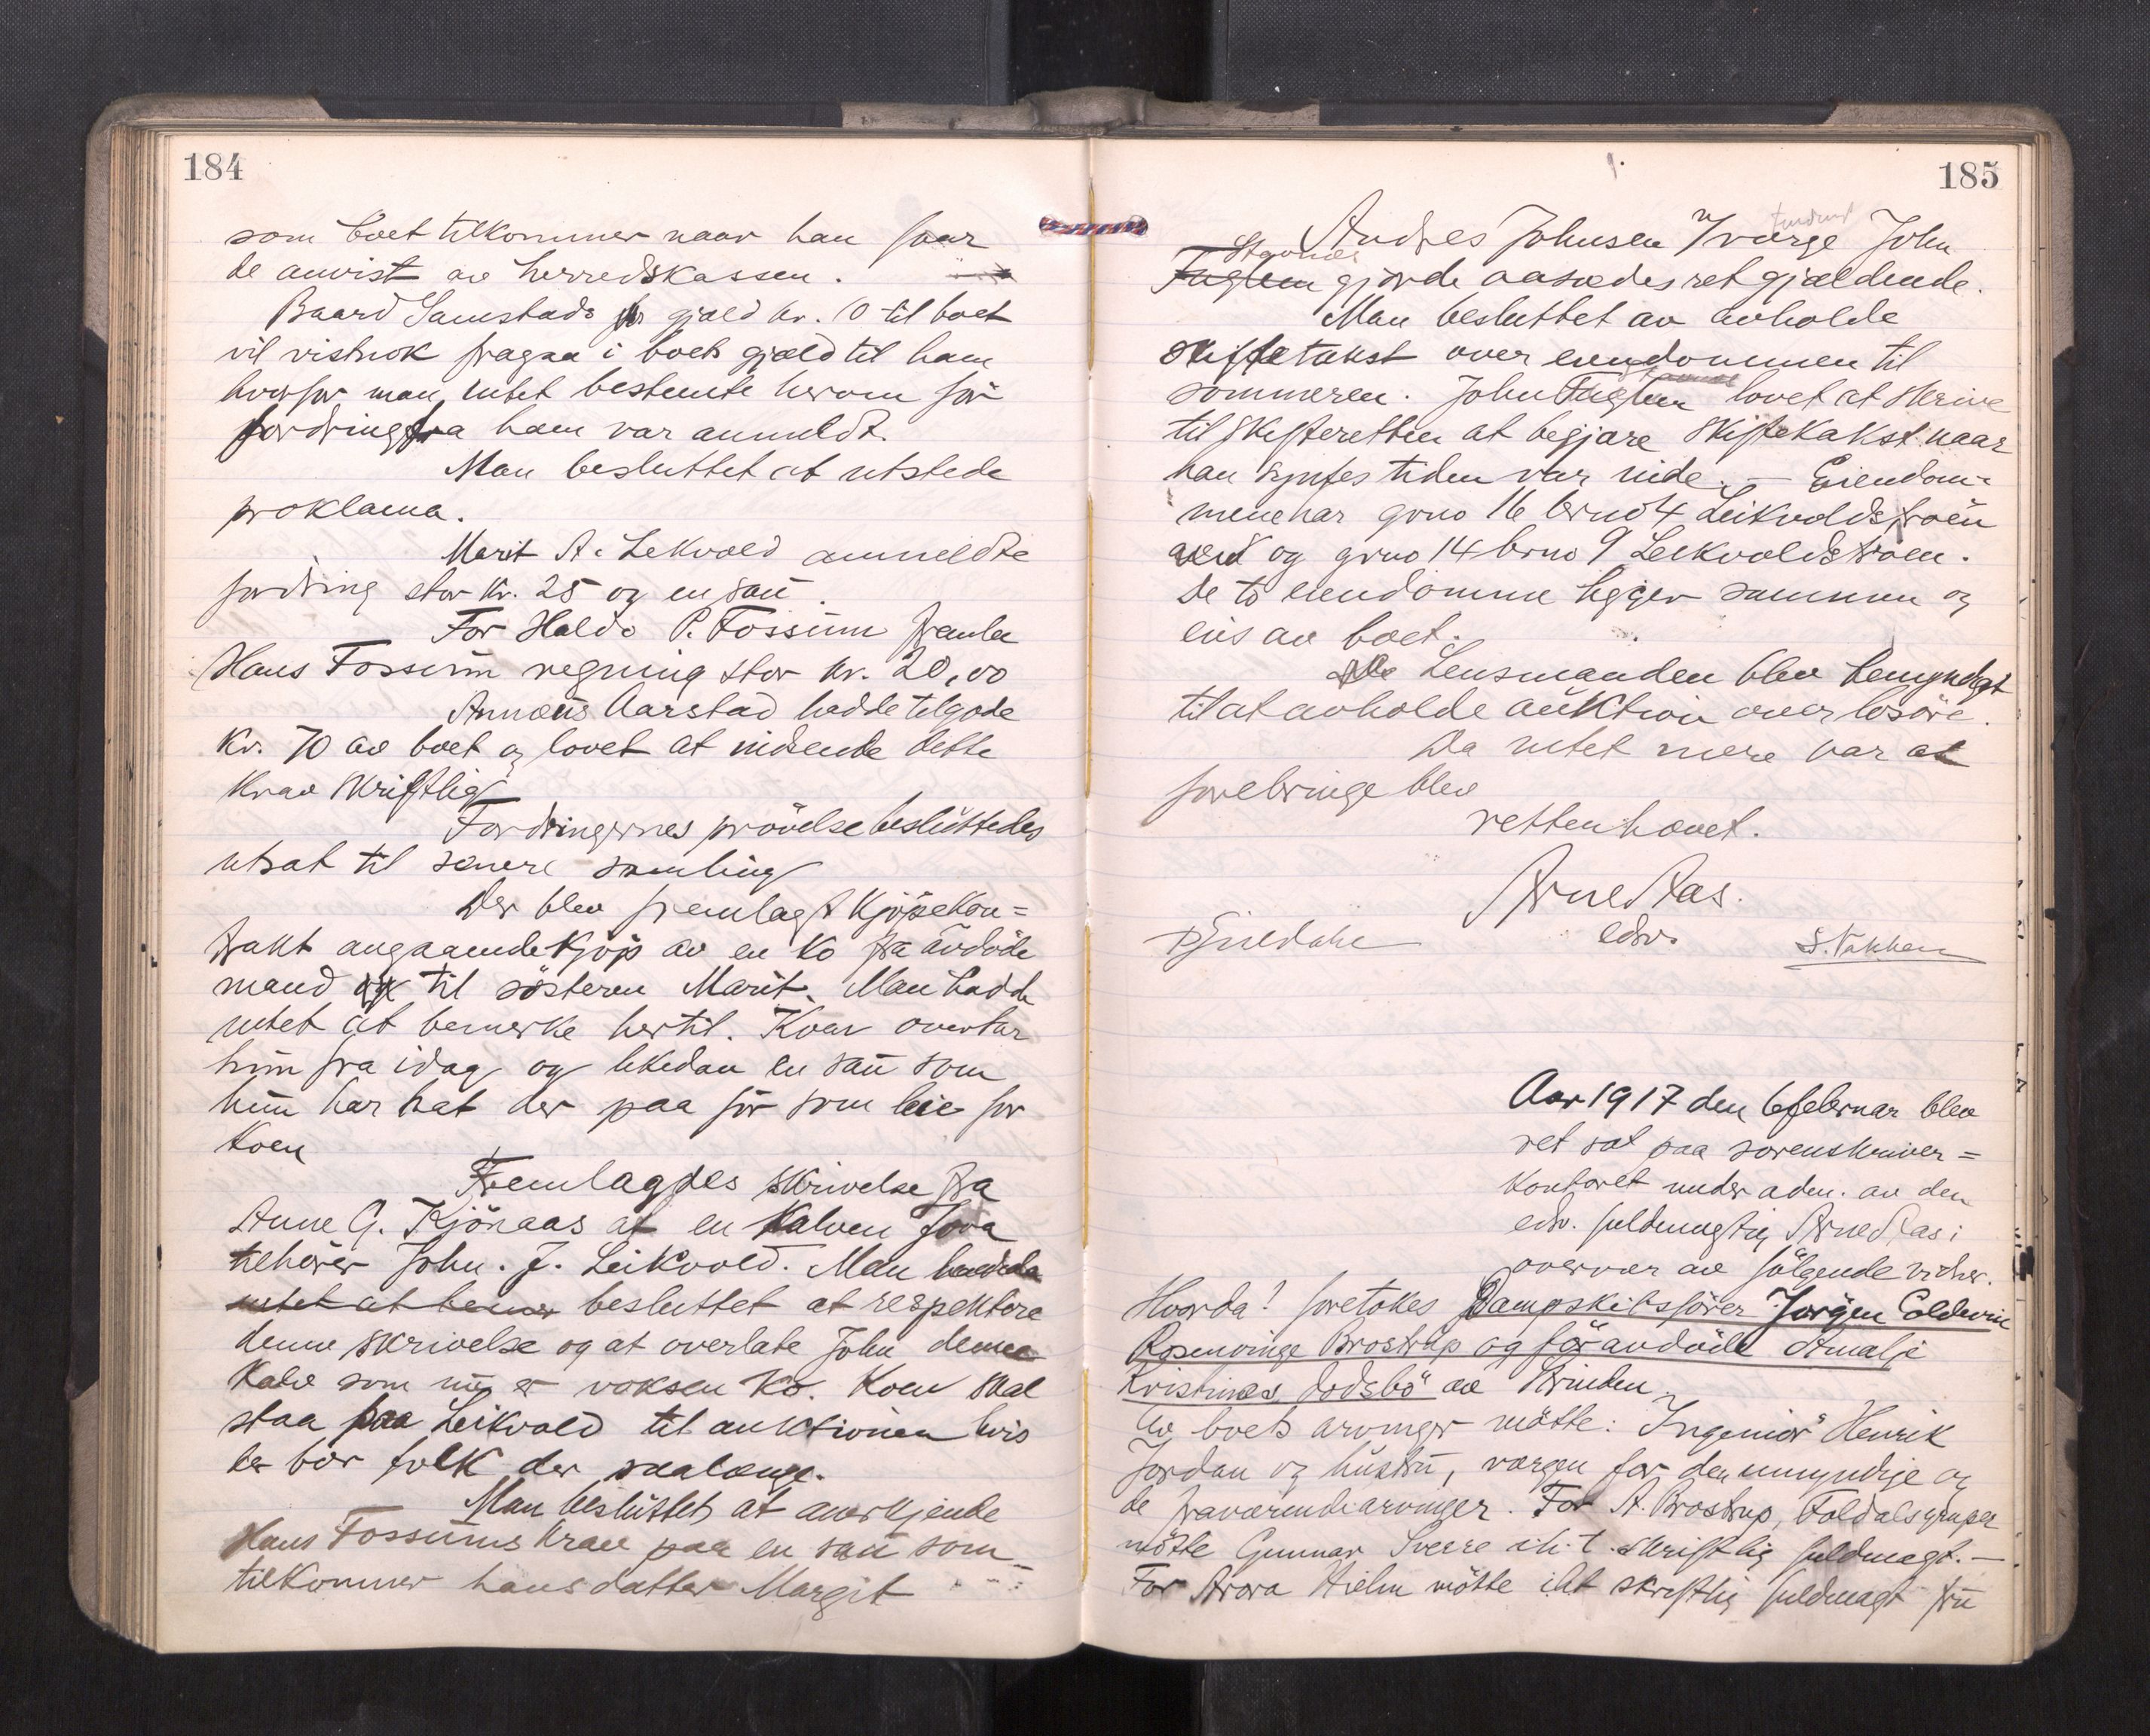 184
som boet tilkommer naar han faar
de anvist av herredskassen.
Baard Samstads gjæld kr. 10 til boet
vil vistnok fragaa i boets gjæld til ham
hvorfor man intet bestemte herom før
fordring fra ham var anmeldt.
Man besluttet at utstede
proklama.
Marit A. Lekvold anmeldte
fordring stor kr. 25 og en sau.
For Haldo P. Fossum
Hans Fossum regning stor kr. 20,00
Annæus Aarstad hadde tilgode
kr. 70 av boet og lovet at indsende dette
krav skriftlig
Fordringernes prøvelse besluttedes
utsat til senere samling
Der blev fremlagt Kjøpekon=
trakt angaaende kjøp av en ko fra avdøde
mand til søsteren Marit. Man hadde
intet at bemerke hertil. Koen overtar
hun fra idag og likedan en sau som
hun har hat der paa fôr som leie for
koen
Fremlagdes skrivelse fra
Anne G. Kjönaas at en Kalven Fora
tilhører John. J. Leikvold. Man
intet at bemer besluttet at respektere
denne skrivelse og at overlate John denne
Kalv som nu er voksen ko. Koen skal
staa paa Leikvold til auktionen hvis
der bor folk der saalænge.
Man besluttet at anerkjende
Hans Fossums krav paa en sau som
tilkommer hans datter Margit
185
Andres Johnsen v/ verge John
Stavnes
Fuglem gjorde aasædesret gjældende.
Man besluttet av avholde
skiftetakst over eiendommen til
sommeren. John Fuglem lovet at skrive
til skifteretten at begjære skiftetakst naar
han syntes tiden var inde. — Eiendom-
mene har gno 16 brno 4 Leikvoldstrøen
og grno 14 brno 9 Leikvoldstrøen.
De to eiendomme ligger sammen og
eies av boet.
Lensmanden blev bemyndiget
til at avholde auktion over løsøre.
Da intet mere var at
forebringe blev
retten hævet.
Arne Aas.
edsv.
S. Vakken
Aar 1917 den 6 februar blev
ret sat paa sorenskriver=
kontoret under adm. av den
edsv. fuldmægtig Arne Aas i
overvær av følgende vidner.
Hvorda! foretokes Dampskibsfører Jørgen Coldevin
Rosenvinge Brostrup og før avdøde Amalje
Kristines dødsbo av Strinden
Av boets arvinger møtte: Ingeniør Henrik
Jordan og hustru, værgen for den umyndige og
de fraværende arvinger. For A. Brostrup, Foldals gruper
møtte Gunnar Sverre ih. t. skriftlig fuldmagt. —
For Arora Hielm møtte iht skriftlig fuldmagt fru